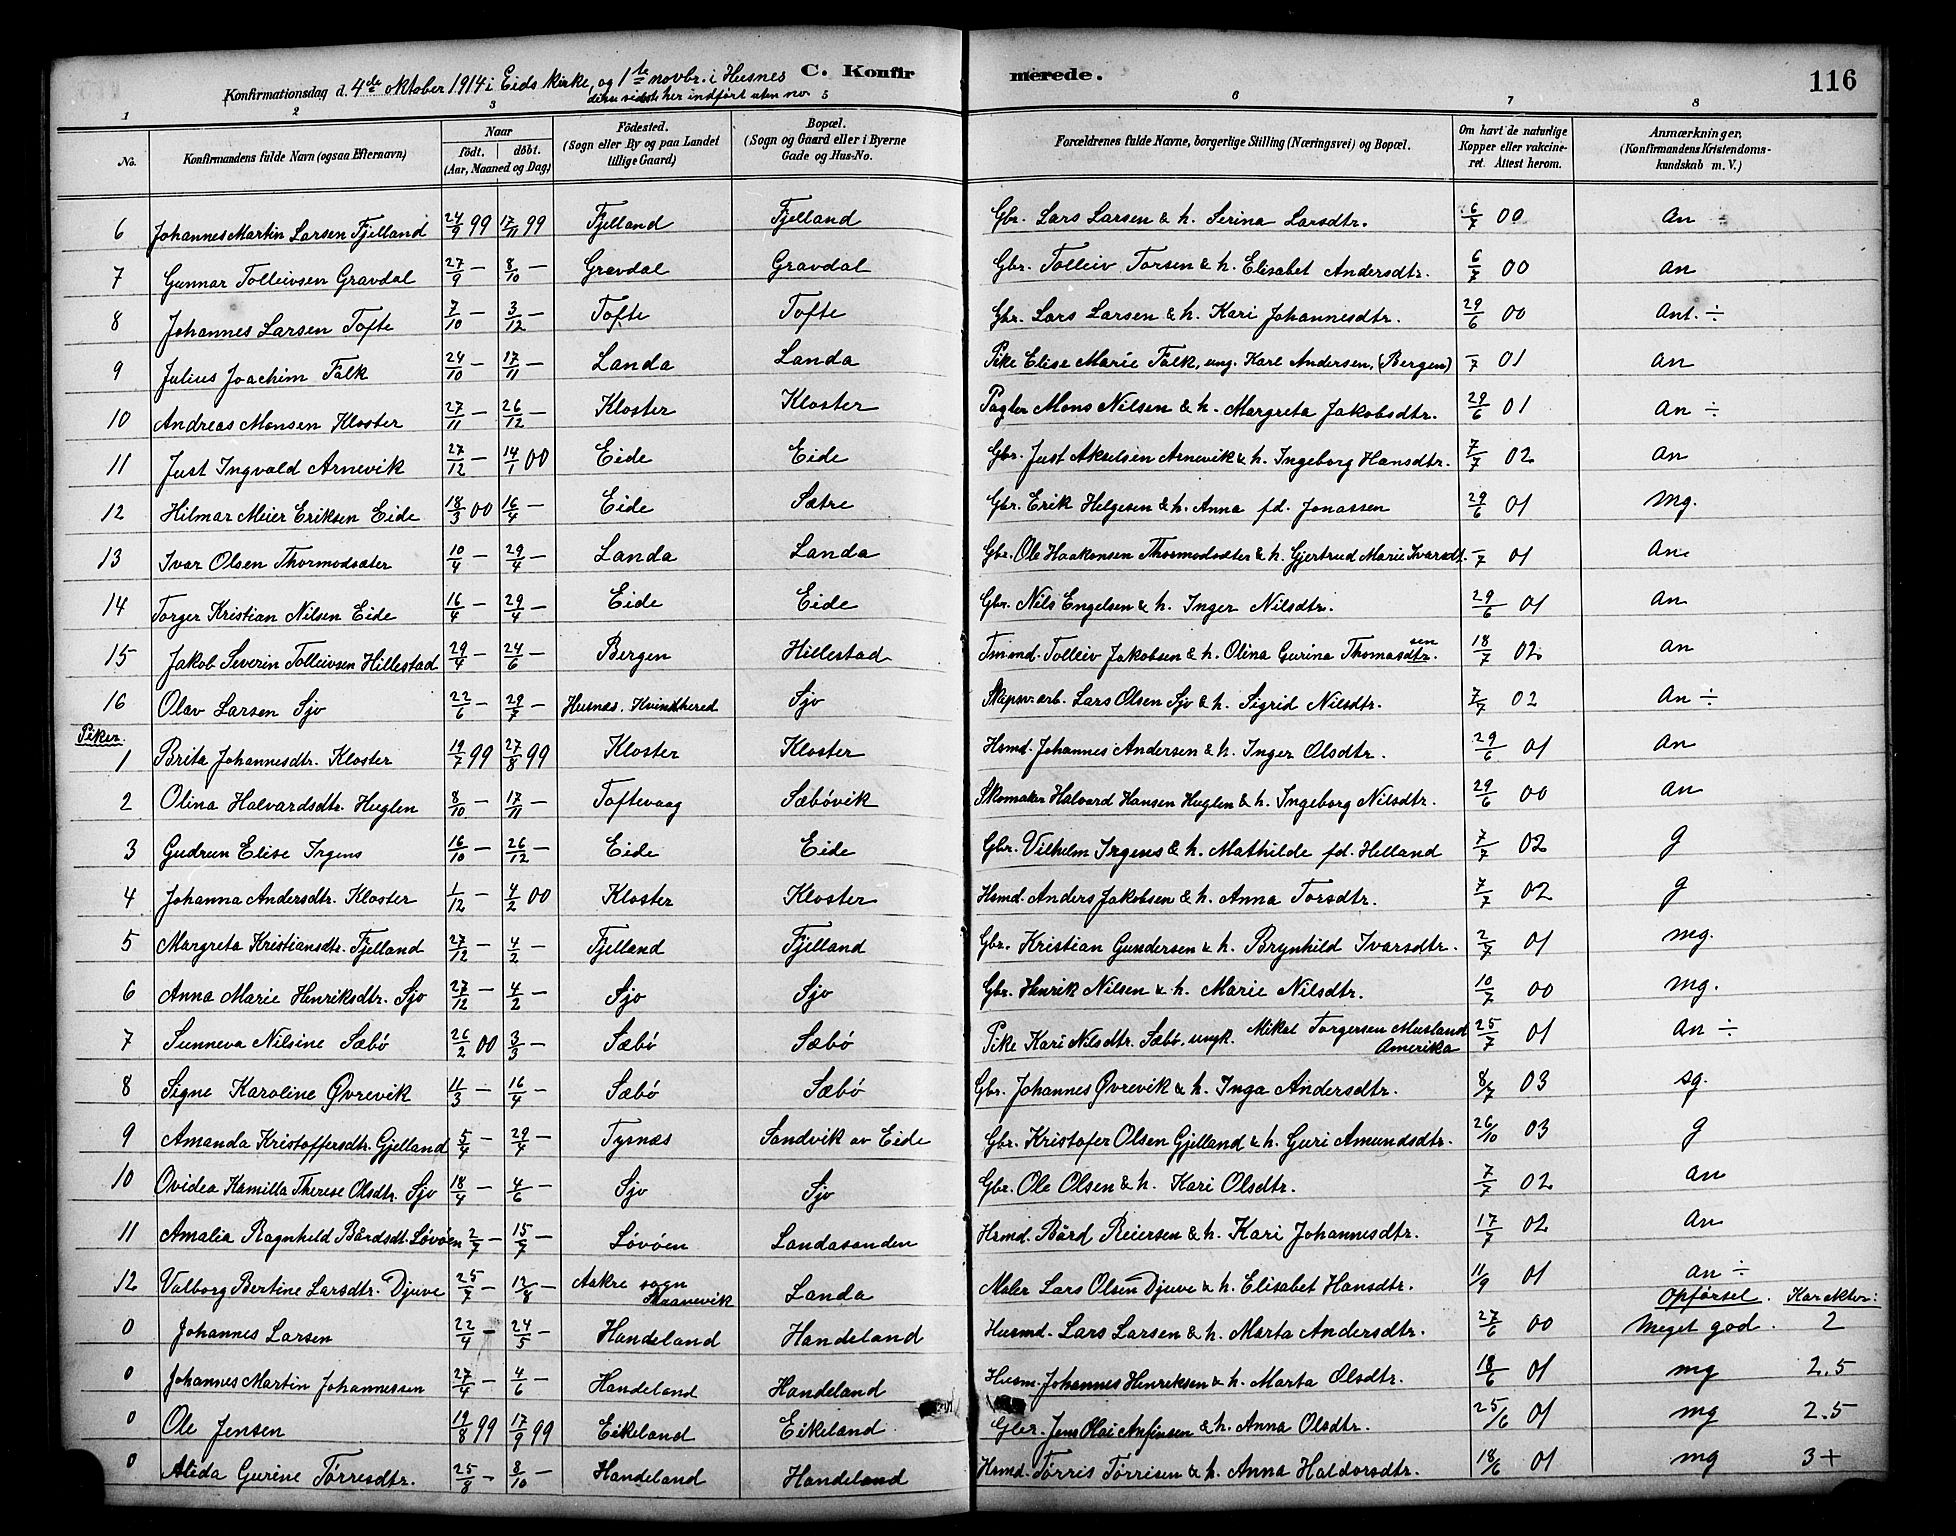 C. Konfirmerede. 116
Konfirmationsdag d. 4de oktober 1914 i Eids kirke, og 1te novbr. i Husnes
disse sidste her indført uten no.
1 2 3 4 5 6 7 8
No. | Konfirmandens fulde Navn (ogsaa Efternavn) | Naar født. døbt. (Aar, Maaned og Dag) | Födested. (Sogn eller By og paa Landet tillige Gaard) | Bopæl. (Sogn og Gaard eller i Byerne Gade og Hus-No.) | Forældrenes fulde Navne, borgerlige Stilling (Næringsvei) og Bopæl. | Om havt de naturlige Kopper eller vakcineret. Attest herom. | Anmærkninger, (Konfirmandens Kristendomskundskab m. V.)
6 Johannes Martin Larsen Fjelland 24/9 99 17/11 99 Fjelland Fjelland Gbr. Lars Larsen & h. Serina Larsdtr. 6/7 00 an ÷
7 Gunnar Tolleivsen Gravdal 27/9 — 8/10 — Gravdal Gravdal Gbr. Tolleiv Torsen & h. Elisabet Andersdtr. 6/7 00 an
8 Johannes Larsen Tofte 7/10 — 3/12 — Tofte Tofte Gbr. Lars Larsen & h. Kari Johannesdtr. 29/6 00 Ant. ÷
9 Julius Joachim Falk 24/10 — 17/11 — Landa Landa Pike Elise Marie Falk, ung. Karl Andersen, (Bergen) –/7 01 an
10 Andreas Monsen Kloster 27/11 — 26/12 — Kloster Kloster Pagter Mons Nilsen & h. Margreta Jakobsdtr. 29/6 01 an ÷
11 Just Ingvald Arnevik 27/12 — 14/1 00 Eide Eide Gbr. Just Akselsen Arnevik & h. Ingeborg Hansdtr. 7/7 02 an
12 Hilmar Meier Eriksen Eide 18/3 00 16/4 — Eide Sætre Gbr. Erik Helgesen & h. Anna fd. Jonassen 29/6 01 mg.
13 Ivar Olsen Thormodsæter 10/4 — 29/4 — Landa Landa Gbr. Ole Haakonsen Thormodsæter & h. Gjertrud Marie Ivarsdt. –/7 01 an.
14 Torger Kristian Nilsen Eide 16/4 — 29/4 — Eide Eide Gbr. Nils Engelsen & h. Inger Nilsdtr. 29/6 01 an
15 Jakob Severin Tolleivsen Hillestad 29/4 — 24/6 — Bergen Hillestad Tmmd. Tolleiv Jakobsen & h. Olina Gurina Thomasdtr. sen 18/7 02 an
16 Olav Larsen Sjo 22/6 — 29/7 — Husnæs. Kvindhered Sjo Skipsv. arb. Lars Olsen Sjo & h. Sigrid Nilsdtr. 7/7 02 an ÷
Piker.
1 Brita Johannesdtr. Kloster 19/7 99 27/8 99 Kloster Kloster Hsmd. Johannes Andersen & h. Inger Olsdtr. 29/6 01 an
2 Olina Halvardsdtr. Huglen 8/10 — 17/11 — Toftevaag Sæbövik Skomaker Halvard Hansen Huglen & h. Ingeborg Nilsdtr. 29/6 00 an
3 Gudrun Elise Irgens 16/10 — 26/12 — Eide Eide Gbr. Vilhelm Irgens & h. Mathilde fd. Helland 7/7 02 g
4 Johanna Andersdtr. Kloster 1/12 — 4/2 00 Kloster Kloster Hsmd. Anders Jakobsen & h. Anna Torsdtr. 7/7 02 g
5 Margreta Kristiansdtr. Fjelland 27/12 — 4/2 — Fjelland Fjelland Gbr. Kristian Gundersen & h. Brynhild Ivarsdtr. 2/7 01 mg.
6 Anna Marie Henriksdtr. Sjo 27/12 — 4/2 — Sjo Sjo Gbr. Henrik Nilsen & h. Marie Nilsdtr. 10/7 00 mg.
7 Sunneva Nilsine Sæbö 26/2 00 3/3 — Sæbö Sæbö Pike Kari Nilsdtr. Sæbö, ungk. Mikal Torgersen Musland Amerika 25/7 01 An ÷
8 Signe Karoline Øvrevik 11/3 — 16/4 — Sæbö Sæbö Gbr. Johannes Øvrevik & h. Inga Andersdtr. 8/7 03 sg.
9 Amanda Kristoffersdtr. Gjelland 5/4 — 29/4 — Tysnæs Sandvik av Eide Gbr. Kristofer Olsen Gjelland & h. Guri Amundsdtr. 26/10 03 g
10 Ovidea Kamilla Therese Olsdtr. Sjo 18/4 — 4/6 — Sjo Sjo Gbr. Ole Olsen & h. Kari Olsdtr. 7/7 02 an
11 Amalia Ragnhild Bårdsdt. Lövöen 2/7 — 15/7 — Lövöen Landasanden Hsmd. Bård Reiersen & h. Kari Johannesdtr. 17/7 02 an
12 Valborg Bertine Larsdtr. Djuve 25/7 — 12/8 — Aakre sogn Skaanevik Landa Maler Lars Olsen Djuve & h. Elisabet Hansdtr. 11/9 01 an ÷
Opförsel. Karakter:
0 Johannes Larsen 22/4 — 24/5 — Handeland Handeland Husmd. Lars Larsen & h. Marta Andersdtr. 27/6 00 Meget god. 2
0 Johannes Martin Johannessen 27/4 — 4/6 — Handeland Handeland Husm. Johannes Henriksen & h. Marta Olsdtr. 18/6 01 mg 2.5
0 Ole Jensen 19/8 99 17/9 99 Eikeland Eikeland Gbr. Jens Olai Anfinsen & h. Anna Olsdtr. 25/6 01 mg 2.5
0 Alida Gurine Törresdtr. 25/8 — 8/10 — Handeland Handeland Hsmd. Törris Törrisen & h. Anna Haldorsdtr. 18/6 01 mg 3+